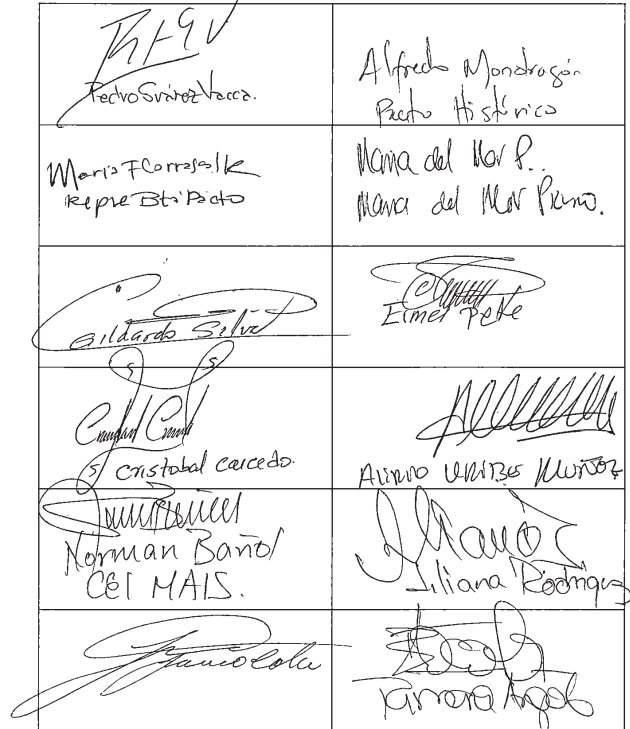 Pedro Suárez Vacca.
Alfredo Mondragón
Pacto Histórico
María F Carrascal R
Repre Btá Pacto
María del Mar P.
María del Mar Pizarro.
Gildardo Silva
Eimer Pete
Cristobal Caicedo.
Alirio Uribe Muñoz
Norman Bañol
CEI MAIS.
Liliana Rodríguez
Tamara Argote